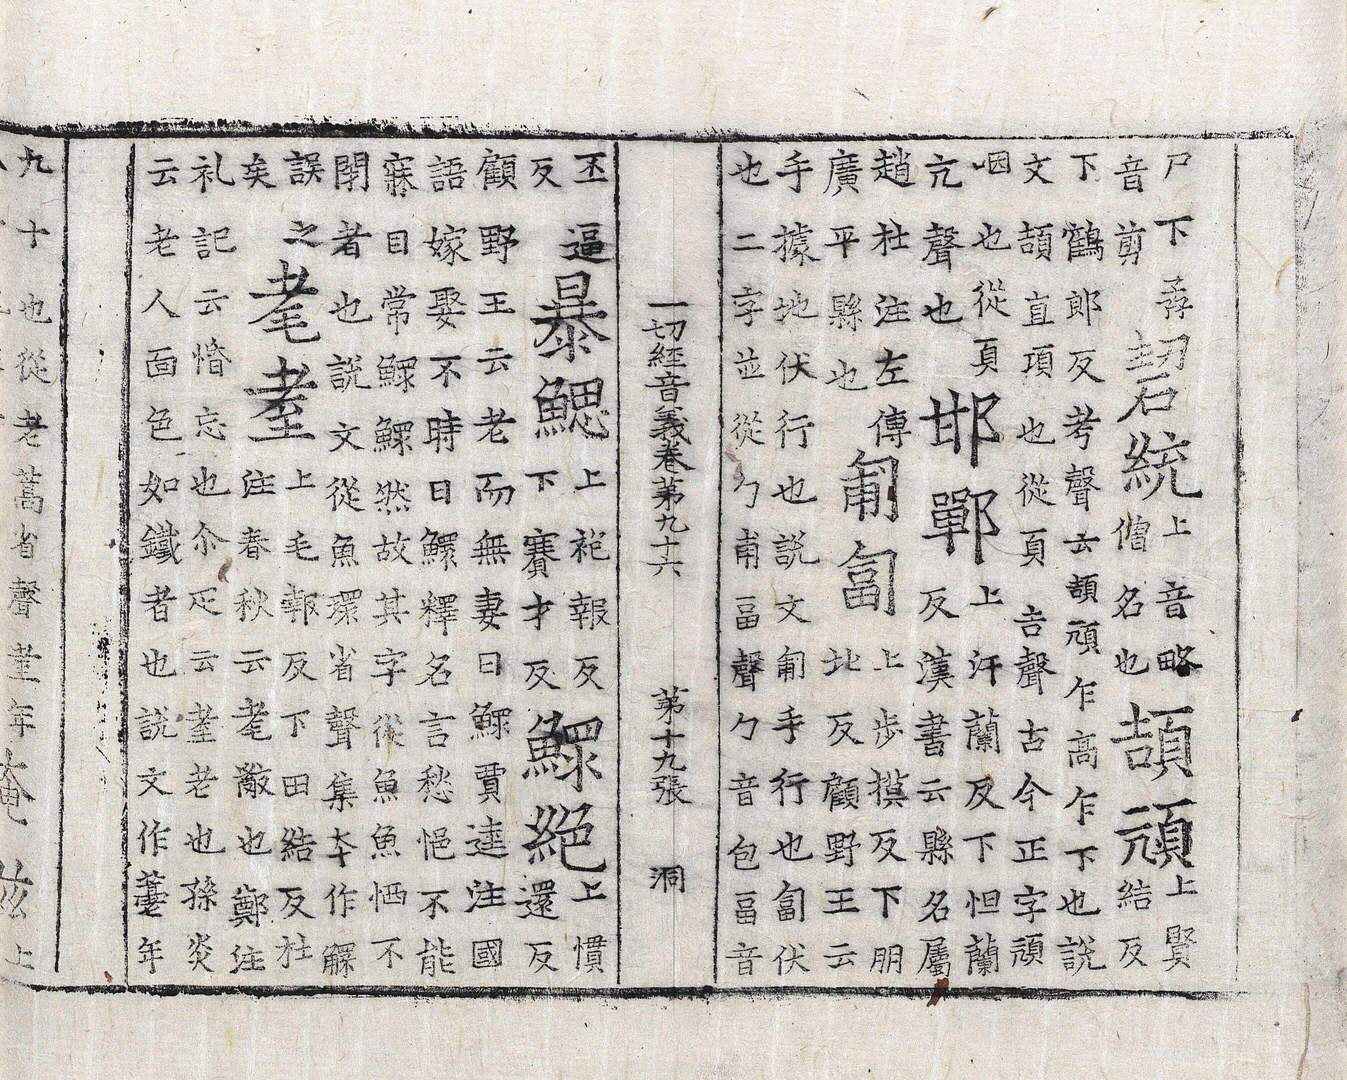 尸下㝷音剪䂮統上音略僧名也頡頏上賢結反
下鶴郎反考聲云頡頏乍高乍下也說
文頡直項也從頁吉聲古今正字頏
咽也從頁亢聲也邯鄲上汗蘭反下怛蘭反漢書云縣名屬
趙杜注左傳廣平縣也匍匐上步摸反下朋北反顧野王云
手據地伏行也說文匍手行也匐伏
也二字並從勹甫畐聲勹音包畐音
一切經音義卷第九十六 第十九張 洞
丕逼反暴鰓上袍報反下賽才反鰥絕上慣還反
顧野王云老而無妻曰鰥賈逵注國
語嫁娶不時曰鰥釋名言愁悒不能
寐目常鰥鰥然故其字從魚魚恓不
閉者也說文從魚環省聲集本作
誤之矣耄耋上毛報反下田結反杜注春秋云耄亂也鄭注
礼記云惛忘也尒疋云耋老也孫炎
云老人面色如鐵者也說文作年
九十也從老蒿省聲耋年